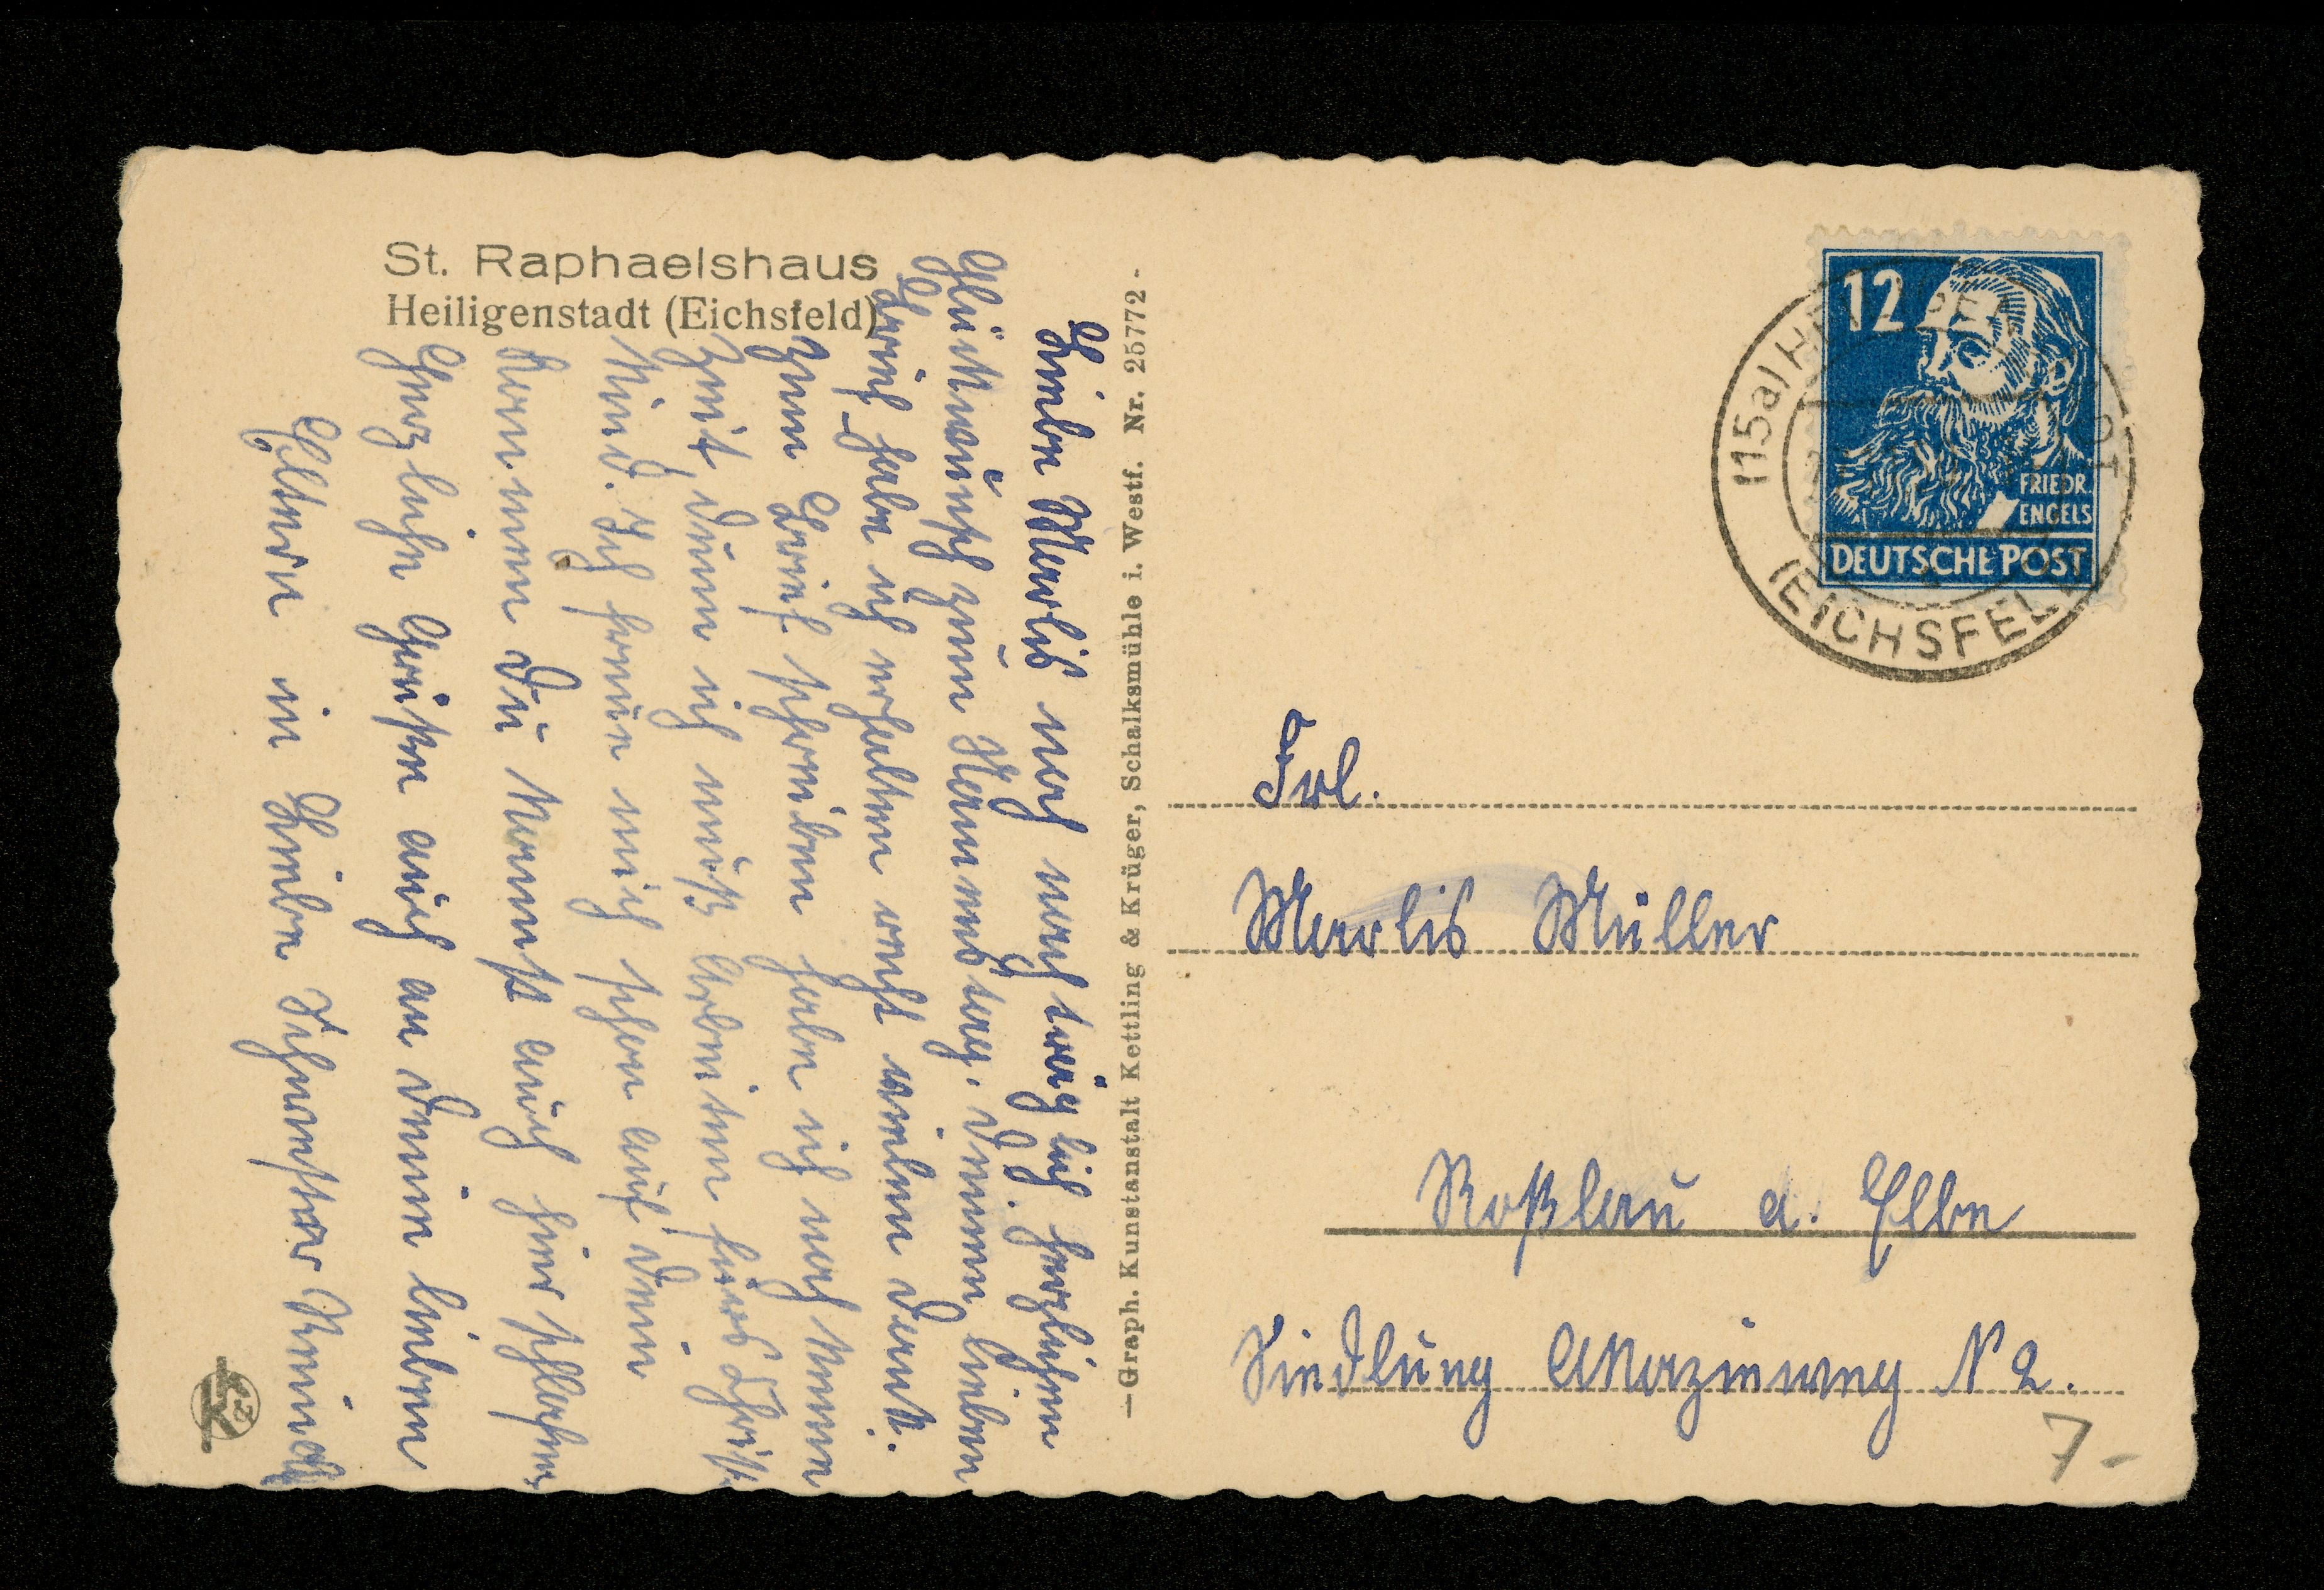 St. Raphaelshaus
Heiligenstadt (Eichsfeld)
Liebe Marlis noch nachträglich herzlichen
Glückwunsch zum Namenstag. Deinen lieben
Brief habe ich erhalten recht vielen Dank.
Zum Brief schreiben habe ich noch keine
Zeit, denn ich muß arbeiten fürs
Kind. Ich freue mich schon auf Dein
kommen Du kannst auch hier schlafen.
Herzliche Grüße auch an Deine lieben
Eltern in Liebe Schwester
—Graph. Kunstanstalt Kettling & Krüger, Schalksmühle i. Westf. Nr. 25772-
12
FRIEDR.
ENGELS
DEUTSCHE POST
(15a) HEILIGENSTADT
(EICHSFELD)
Frl.
Marlis Müller
Roßlau a. Elbe
Siedlung Akazienweg N 2.
7-